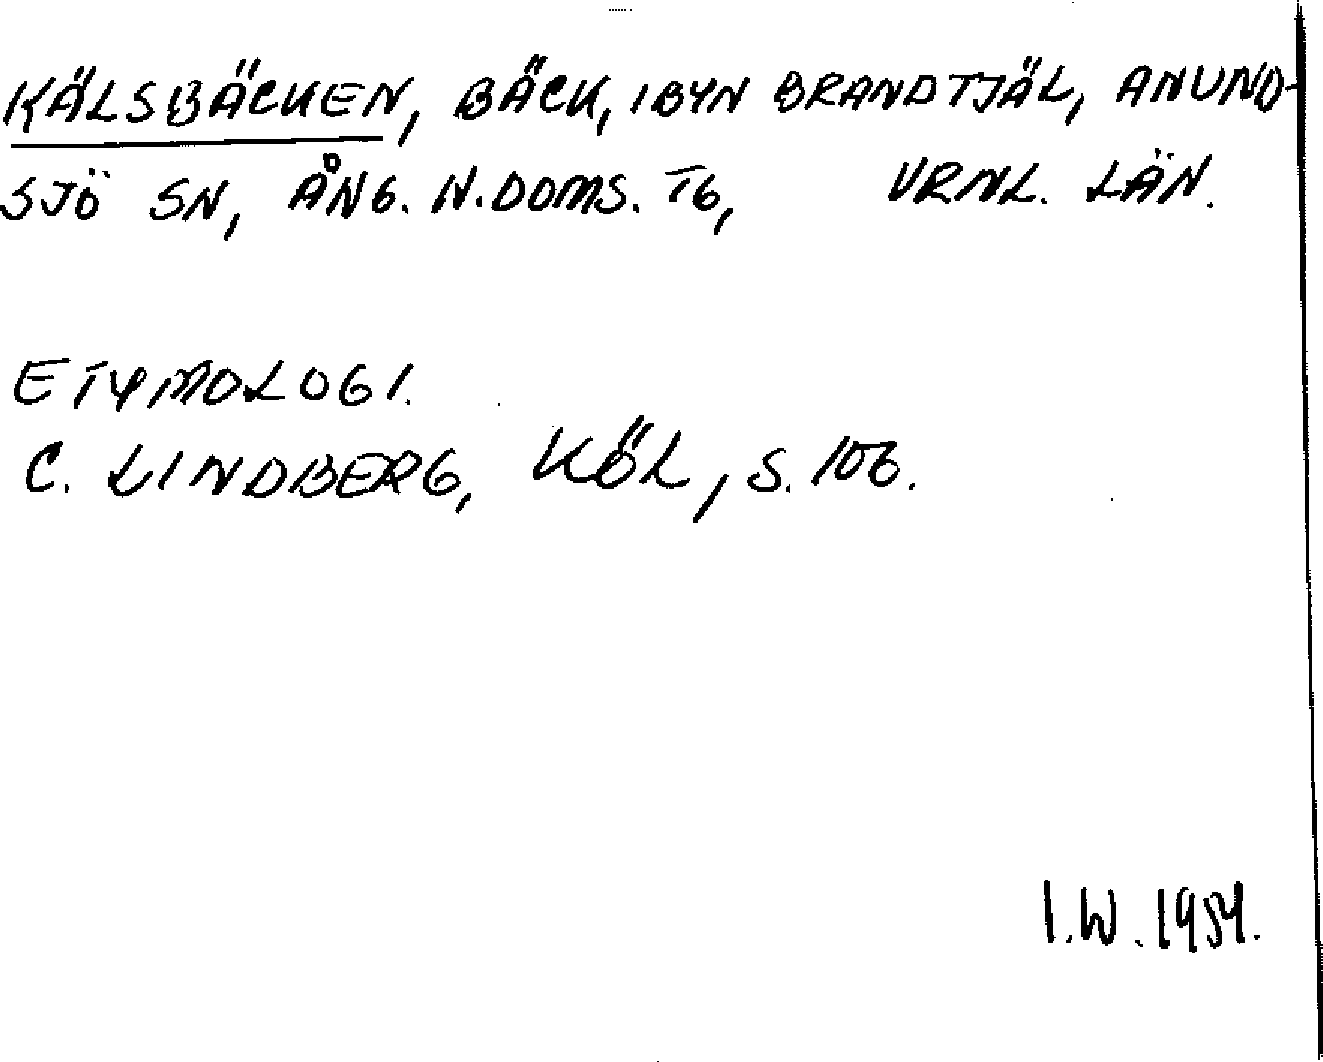 KÄLSBÄCKEN, BÄCK, I BYN BRANDTJÄL, ANUND-
SJÖ SN, ÅNG. N. DOMS. TG, VRNL. LÄN.
ETYMOLOGI.
C. LINDBERG, KÖL, S. 106.
I.W. 1954.